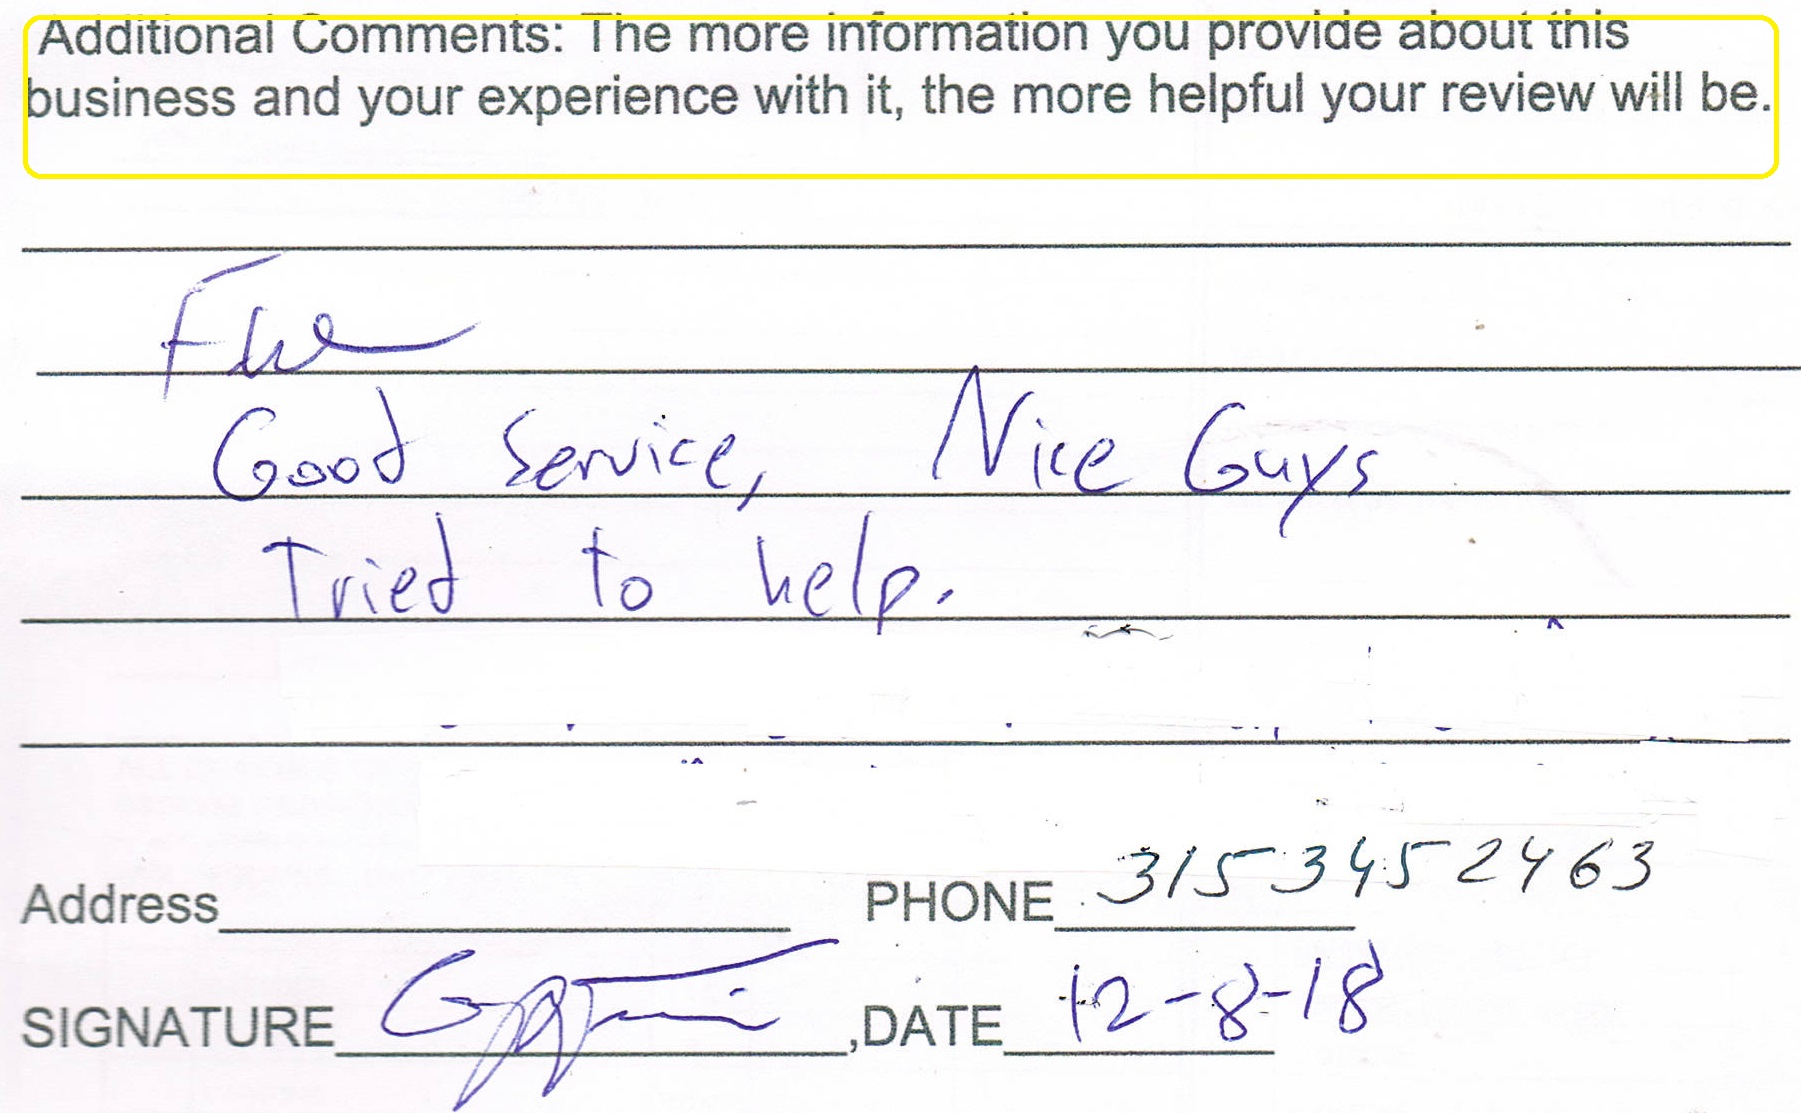 Additional Comments: The more information you provide about this
business and your experience with it, the more helpful your review will be.
Good Service, Nice Guys
Tried to help.
Address PHONE 315 345 2463
SIGNATURE ,DATE 12-8-18